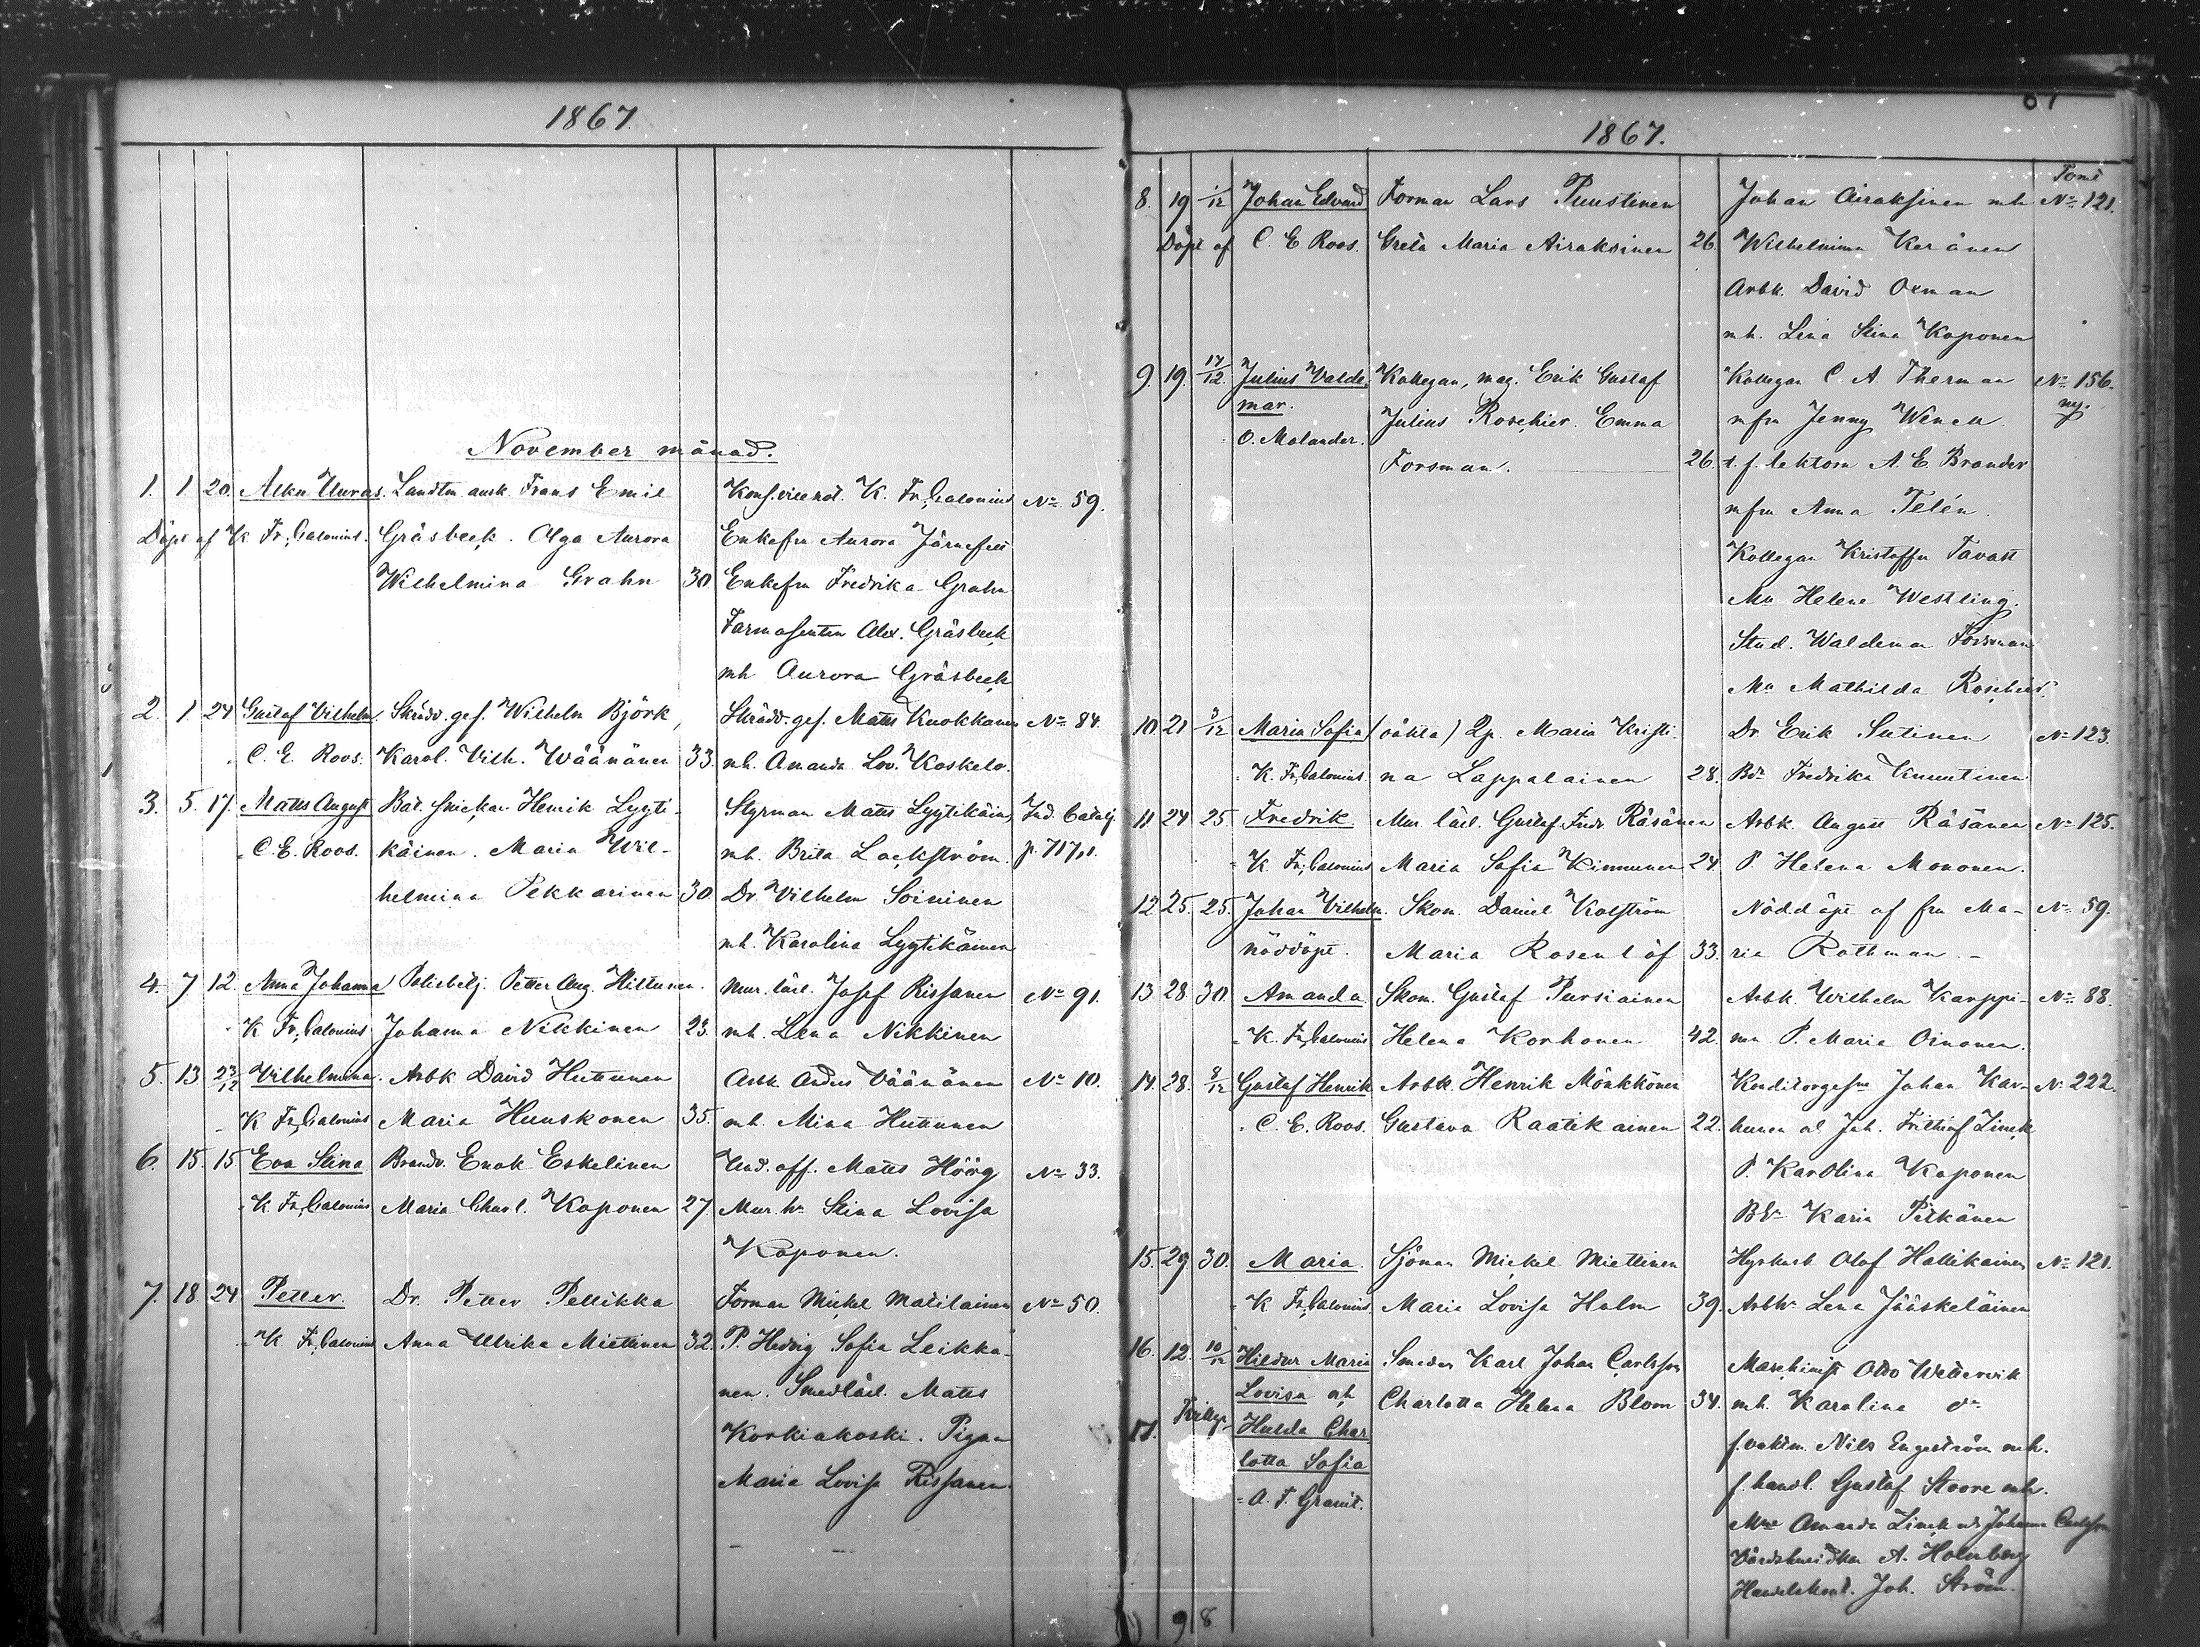 1867.
November månad.
1. 1 20. Allan Uuras. Landtm ausk. Frans Emil Konf. vice not. K. Fr. Calonius No 59.
Döpt af K Fr. Calonius. Gräsbeck. Olga Aurora Enkefru Aurora Järnefelt
Wilhelmina Grahn 30 Enkefru Fredrika Grahn
Farmaseuten Alex. Gräsbeck
mh Aurora Gräsbeck
2. 1 24 Gustaf Vilhelm. Skrädd. ges. Wilhelm Björk, Skrädd. ges. Matts Kuokkanen No 84.
C. E. Roos. Karol. Vilh. Wäänänen 33. mh. Amanda Lov. Koskelo.
3. 5. 17. Matts August Båt. snickar Henrik Lyyti- Styrman Matts Lyytikäinen
C. E. Roos. käinen. Maria Wil- mh. Brita Lackström. p. 717.
helmina Pekkarinen 30. Dr Vilhelm Soininen
mh. Karolina Lyytikäinen
4. 7 12. Anna Johanna Polisbetj. Petter Aug. Hiltunen. Mur. lärl. Josef Rissanen No 91.
K Fr. Calonius Johanna Nikkinen 23. mh. Lena Nikkinen
5. 13 23/12 Vilhelmina. Arbk David Huttunen Arbk Anders Väänänen No 10.
K Fr. Calonius Maria Huuskonen 35. mh. Mina Huttunen
6. 15. 15 Eva Stina Brandv. Enok Eskelinen Und. off. Matts Höög No 33.
K Fr. Calonius Maria Charl. Koponen 27. Mur. hu Stina Lovisa
Koponen.
7. 18. 24 Petter. Dr. Petter Pellikka Forman Mickel Matilainen No 50.
K Fr. Calonius Anna Ulrika Miettinen 32. P. Hedvig Sofia Leikka-
nen. Smedlärl. Matts
Korkiakoski. Pigan
Maria Lovisa Rissanen.
1867.
8. 19 1/12 Johan Edvard Forman Lars Puustinen Johan Airaksinen mh No 121.
Döpt af C. E Roos. Greta Maria Airaksinen 26. Wilhelmina Keränen
Arbk. David Oxman
mh. Lena Stina Koponen
9 19. 17/12. Julius Valde- Kollegan, mag. Erik Gustaf Kollegan C. A. Therman No 156.
mar. Julius Roschier. Emma mfru Jenny ny.
O. Molander. Forsman. 26. t. f. lektorn A. E. Brander
mfru Anna Telén.
Kollegan Kristoffer Tavast
Mll Helene Westling.
Stud. Waldemar Forsman
Mll Mathilda Roschier.
10. 21 3/12 Maria Sofia (oäkta) Qp. Maria Kristi- Dr Erik Sutinen No 123.
K. Fr. Calonius na Lappalainen 28. Bdr Fredrika Knuutinen
11 24 25. Fredrik Mur. lärl. Gustaf Fredr. Räsänen Arbk. August Räsänen No 125.
K Fr. Calonius Maria Sofia Kinnunen 24. P. Helena Mononen.
12 25. 25. Johan Vilhelm. Skom. Daniel Kolström Nöddöpt af fru Ma- No 59.
nöddöpt. Maria Rosenlöf 33. ria Rothman.
13 28 30 Amanda Skom. Gustaf Pursiainen Arbk. Wilhelm Karppi- No 88.
K. Fr. Calonius Helena Korhonen 42. nen P. Maria Oinonen.
14. 28. 8/12 Gustaf Henrik Arbk. Henrik Mönkkönen Konditorges. Johan Kar- No 222.
C. E. Roos. Gustava Raatikainen 22. hunen o. Joh. Frithiof Linck
P. Karolina Koponen
Karin Pitkänen
15. 29 30. Maria Sjöman Mickel Miettinen Hyrkusk Olof Hallikainen No 121.
K Fr. Calonius. Maria Lovisa Holm 39. Arbhu Lena Jääskeläinen
16. 12. 10/12 Hildur Maria Smeden Karl Johan Carlsson Maschinist Otto Wettervik
Lovisa och Charlotta Helena Blom 34. mh. Karolina do
17. Tvill. Hulda Char- f. vaktm. Nils Engström mh.
lotta Sofia f. handl. Gustaf Stoore mh.
A. F. Granit. Mlle Amanda Linck o. Johanna Carlsson
A. Holmberg
Joh. Ström.
98